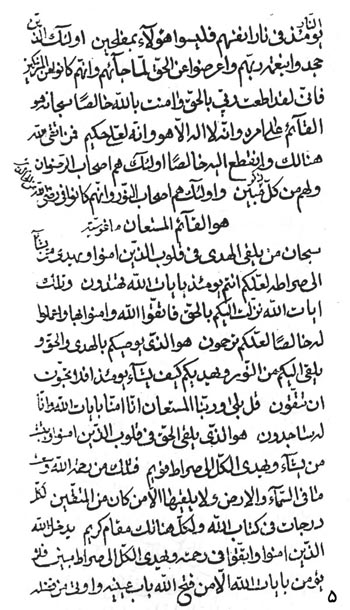 النار
يومئذ في نار انفسهم فليسوا هؤلاء بمفلحين اولئك الذين
جحدوا بنعمة ربهم واعرضوا عن الحق لما جائهم وانهم كانوا من
فاني لقد اطعت ربي بالحق وامنت بالله خالصا سبحانه هو
القائم على امره وانه لا اله الا هو وانه لعلي حكيم فمن اتقى منه
هنالك وانقطع اليه خالصا اولئك هم اصحاب الرضوان
ولهم من كل واولئك هم اصحاب النور وانهم كانوا
هو القائم المستعان
سبحان من يلقي الهدى في قلوب الذين امنوا ويهدي من يشآء
الى صراطه لعلكم انتم يومئذ بايات الله تهتدون وتلك
ايات الله نزلت اليكم بالحق فاتقوا الله وامنوا بها واعملوا
له خالصا لعلكم ترحمون هو الذي يوصيكم بالهدى والحق و
يلقي اليكم من النور ويهديكم كيف يشآء يومئذ افلا تحبون
ان تتقون قل بلى وربنا المستعان انا امنا بايات الله وانا
له ساجدون هو الذي يلقي الحق في قلوب الذين امنوا
من يشآء ويهدي الكل الى صراط قويم فتلك من رحمة الله
ما في السمآء والارض ولا يلقيها الا من كان من المتقين لكل
درجات في كتاب الله ولكل هنالك مقام كريم يدخل الله
الذين امنوا واتقوا في رحمته ويهدي الكل الى صراط مبين
يؤمن بايات الله الا من فتح الله باب عينيه واوتي من فضله
۵